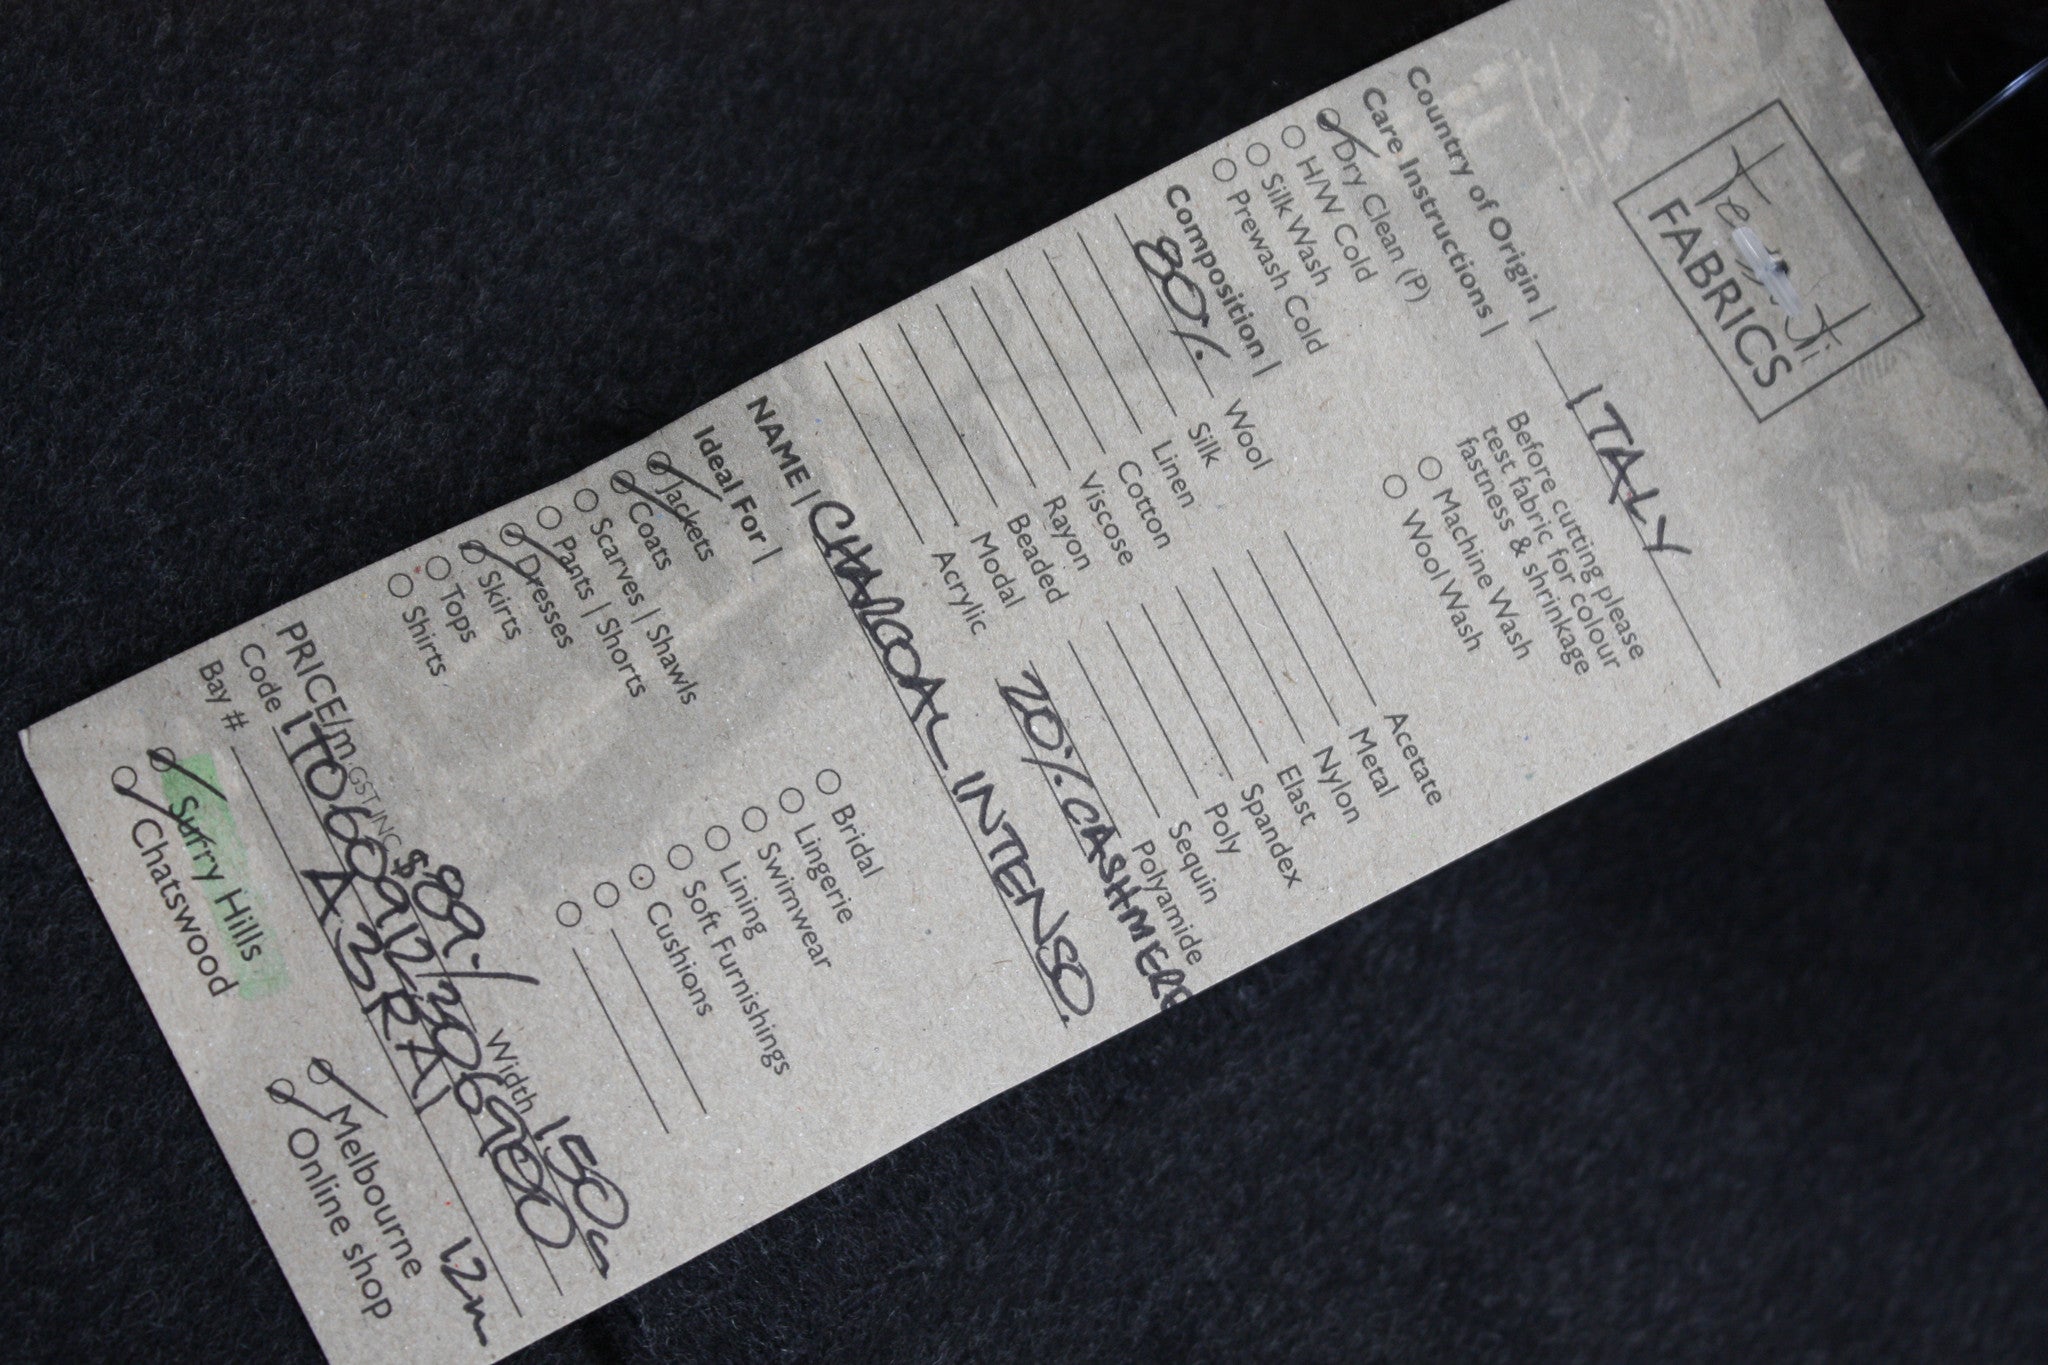 FABRICS
Country of Origin | ITALY
Care Instructions |
Dry Clean (P)
H/W Cold
Silk Wash
Prewash Cold
Before cutting please
test fabric for colour
fastness & shrinkage
Machine Wash
Wool Wash
Composition |
80% Wool
Silk
Linen
Cotton
Viscose
Rayon
Beaded
Modal
Acrylic
Acetate
Metal
Nylon
Elast
Spandex
Poly
Sequin
Polyamide
20% CASHMERE
NAME | CHARCOAL INTENSO.
Ideal For |
Jackets
Coats
Scarves | Shawls
Pants | Shorts
Dresses
Skirts
Tops
Shirts
Bridal
Lingerie
Swimwear
Lining
Soft Furnishings
Cushions
PRICE/m GST INC $89.-/ Width 150
Code
Bay # A3RA1 12m
Surry Hills
Chatswood
Melbourne
Online shop